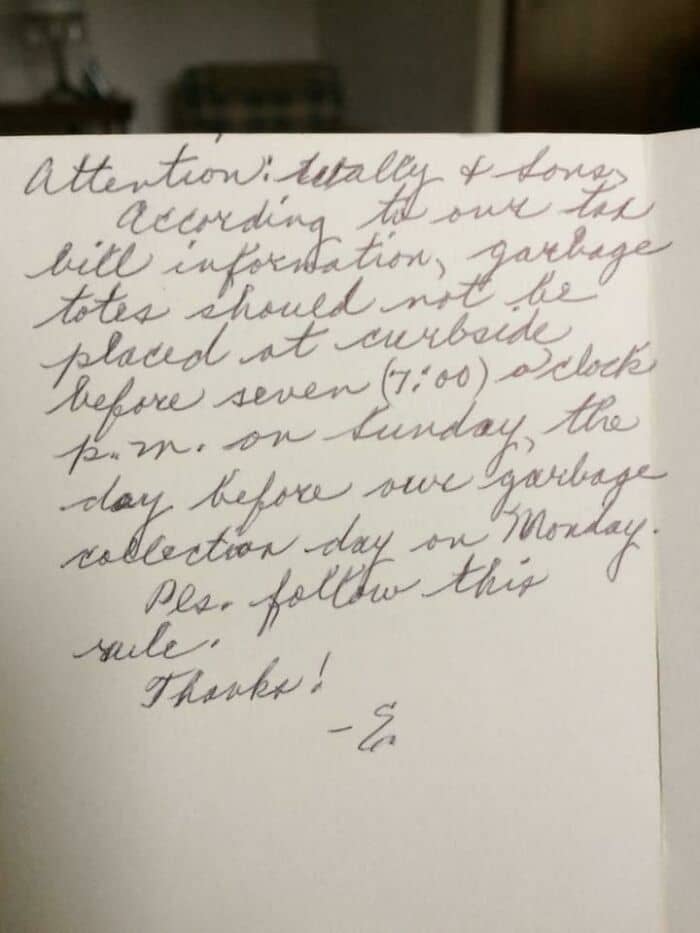 Attention: Wally & Sons,
According to our tax
bill information, garbage
totes should not be
placed at curbside
before seven (7:00) o'clock
p.m. on Sunday, the
day before our garbage
collection day on Monday.
Pls. follow this
rule.
Thanks!
-E